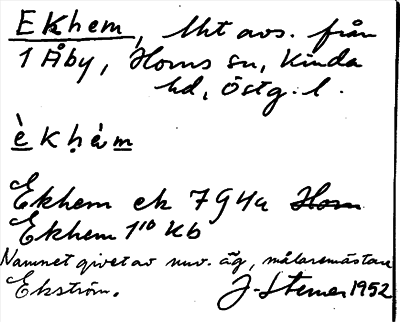 Ekhem, lht avs. från
1 Åby, Horns sn, Kinda
hd, Östg. l.
èkhè̩m
Ekhem ek 79 4a Horn
Ekhem 1¹⁰ Kb
Namnet givet av nuv. äg, målaremästare
Ekström. J. Sterner 1952